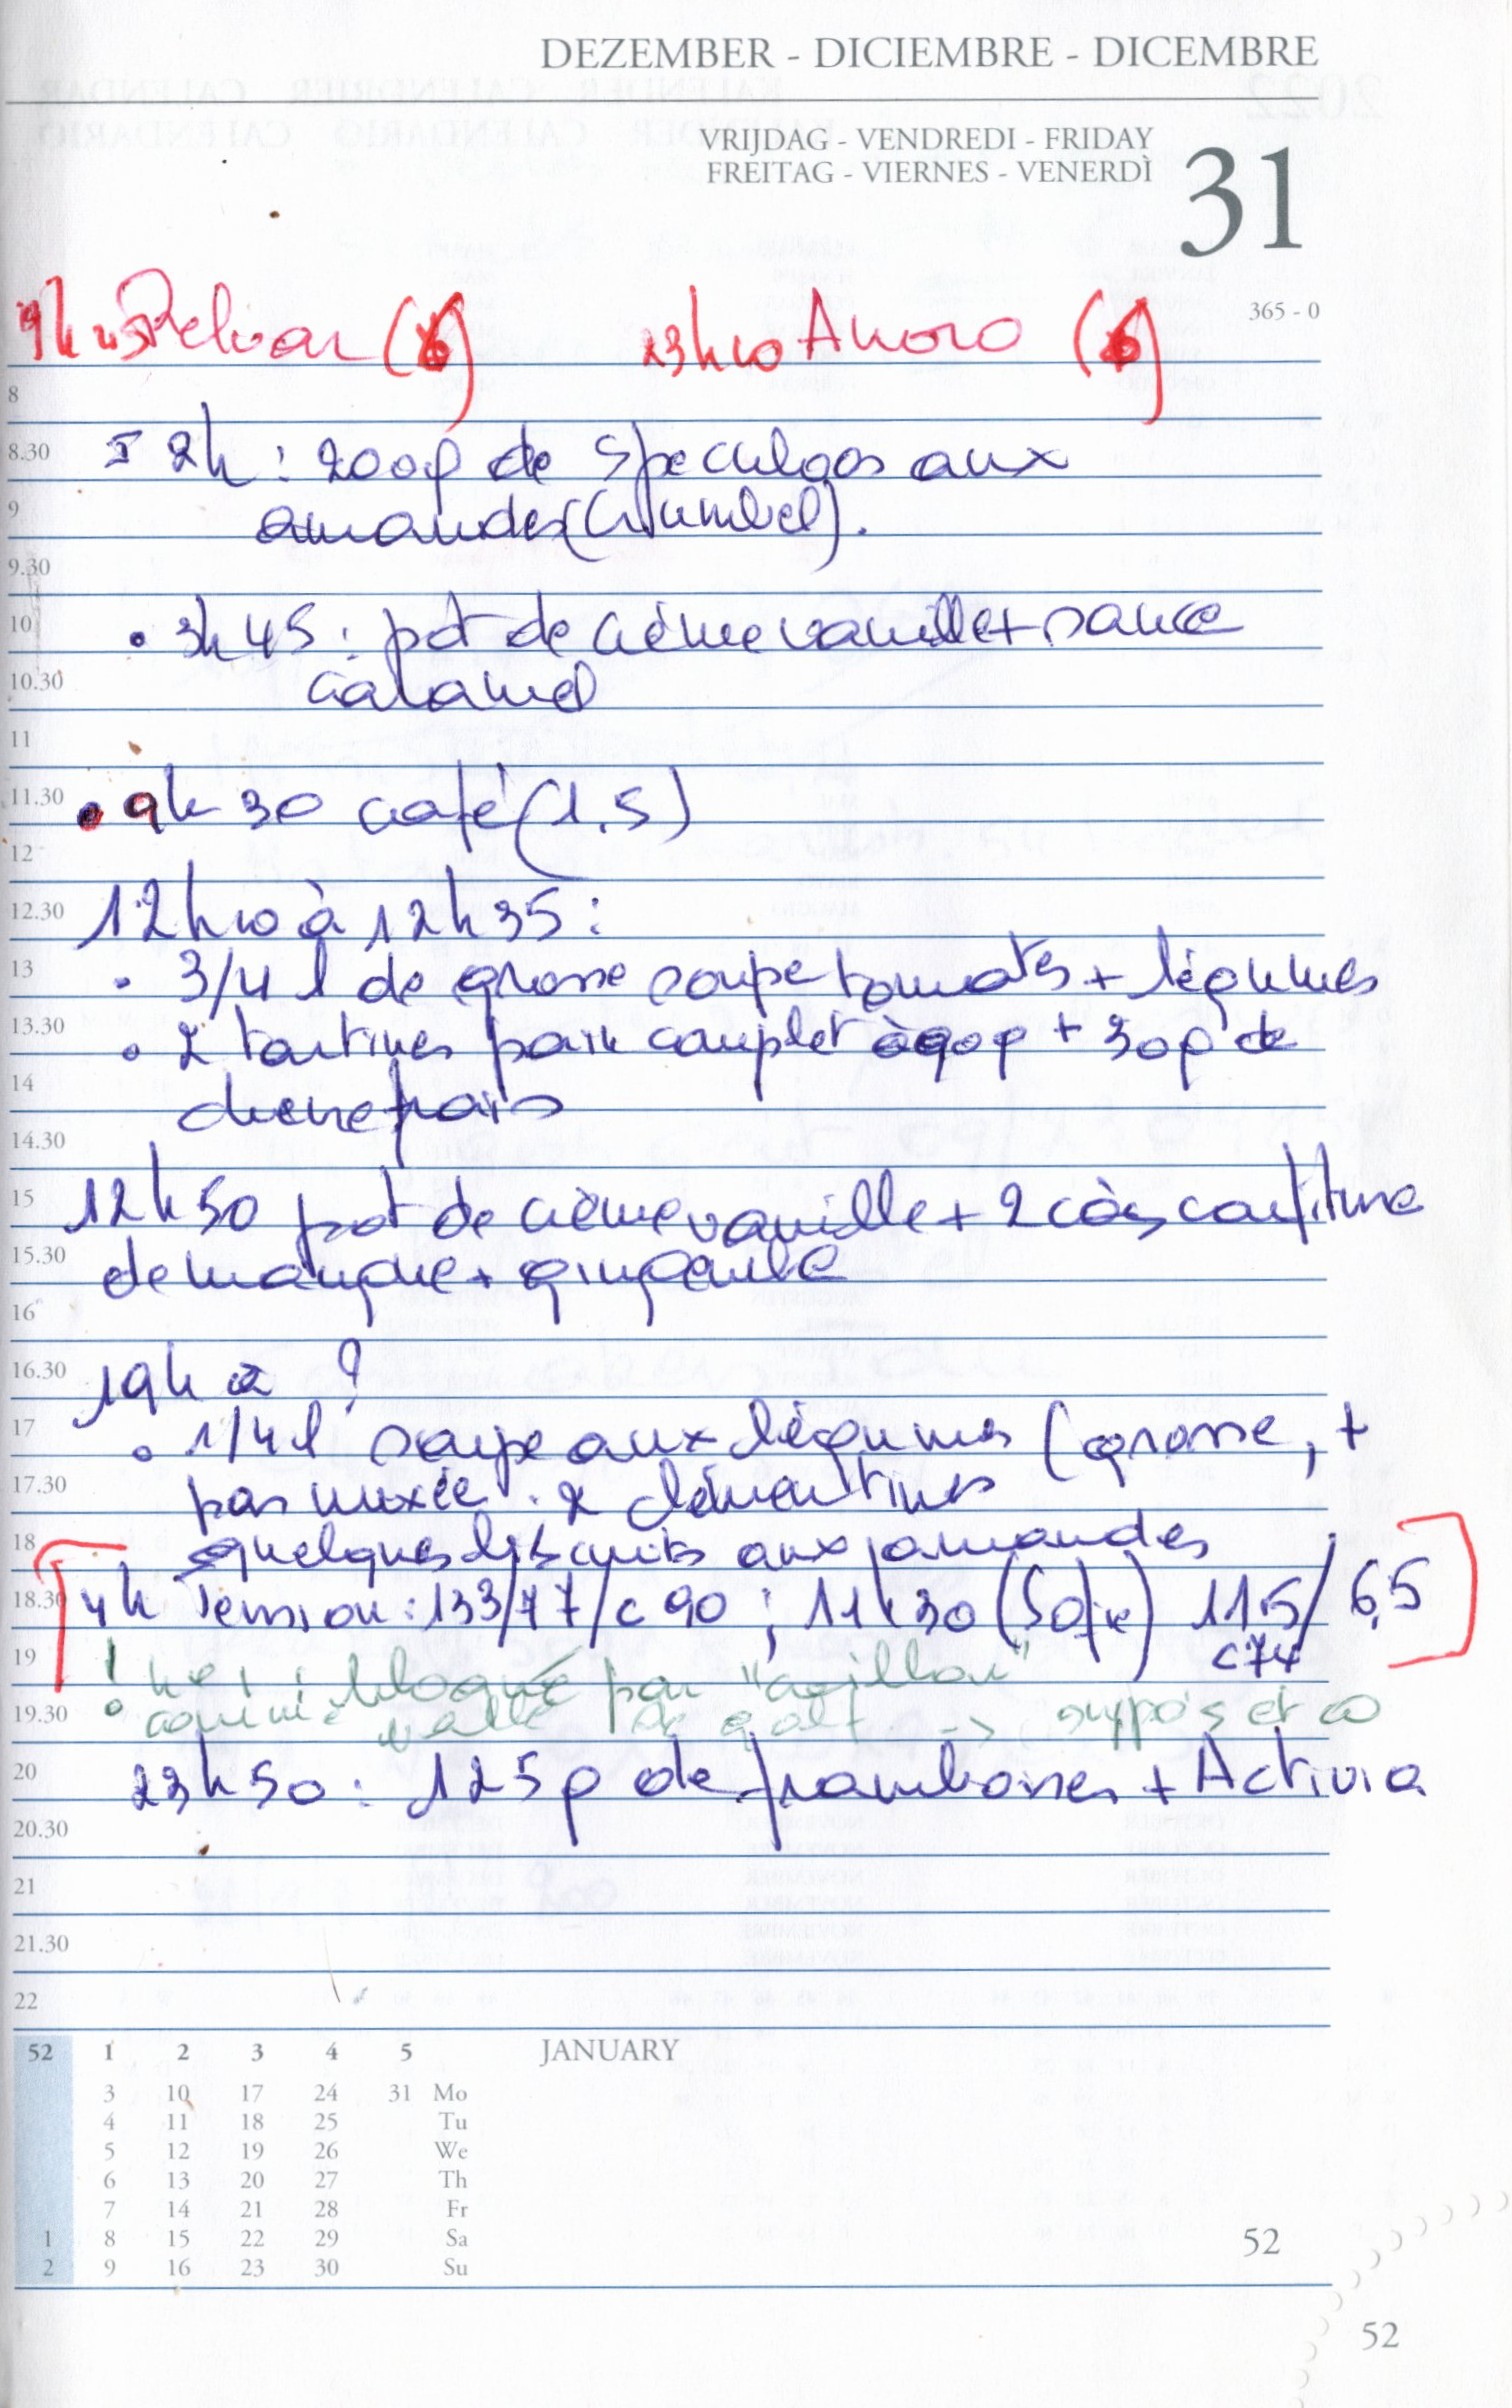 DEZEMBER - DICIEMBRE - DICEMBRE
VRIJDAG - VENDREDI - FRIDAY
FREITAG - VIERNES - VENERDÌ
31
365 - 0
9h Relvar (6) 23h10 Anoro (6)
8
8.30 2h : 200g de speculoos aux
9 amandes
9.30
10 • 3h45 : pot de crème vanille + sauce
10.30 caramel
11
11.30 • 9h30 café (1,5)
12
12.30 12h10 à 12h35 :
13 • 3/4 l de grosse soupe tomates + légumes
13.30 • 2 tartines pain complet à 90g + 30g de
14 chèvre frais
14.30
15 12h50 pot de crème vanille + 2 càs confiture
15.30 de mangue + gingembre
16
16.30 19h à ?
17 • 1/4 l soupe aux légumes (grosse, +
17.30 pas mixée. 2 clémentines
18 quelques biscuits aux amandes
18.30 4h Tension : 133/77/c 90 ; 11h30 (Sofie) 11.5/6,5
c74
19 ! bloqué par
19.30 comme balle de golf -> suppos et
20 23h50 : 125g de framboises + Activia
20.30
21
21.30
22
52 1 2 3 4 5 JANUARY
3 10 17 24 31 Mo
4 11 18 25 Tu
5 12 19 26 We
6 13 20 27 Th
7 14 21 28 Fr
1 8 15 22 29 Sa
2 9 16 23 30 Su
52
52